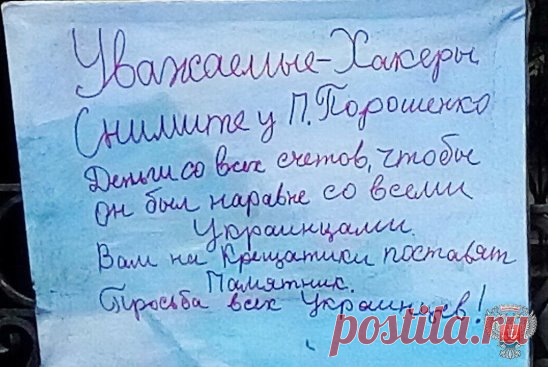 Уважаемые-Хакеры
Снимите у П. Порошенко
Деньги со всех счетов, чтобы
он был наравне со всеми
Украинцами.
Вам на Крещатики поставят
Памятник.
Просьба всех Украинцев!
postila.ru